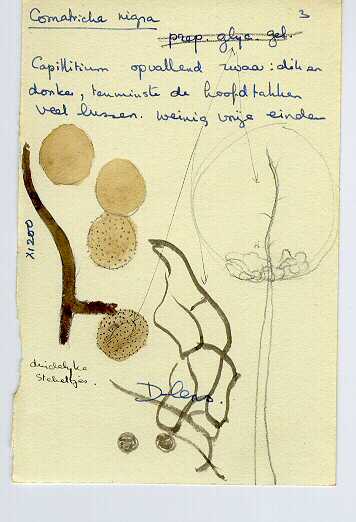 Comatricha nigra
3
prep. glyc. gel.
Capillitium opvallend zwaar: dik en
donker, tenminste de hoofdtakken
veel lussen. weinig vrije einden
X1200
duidelyke
stekeltjes.